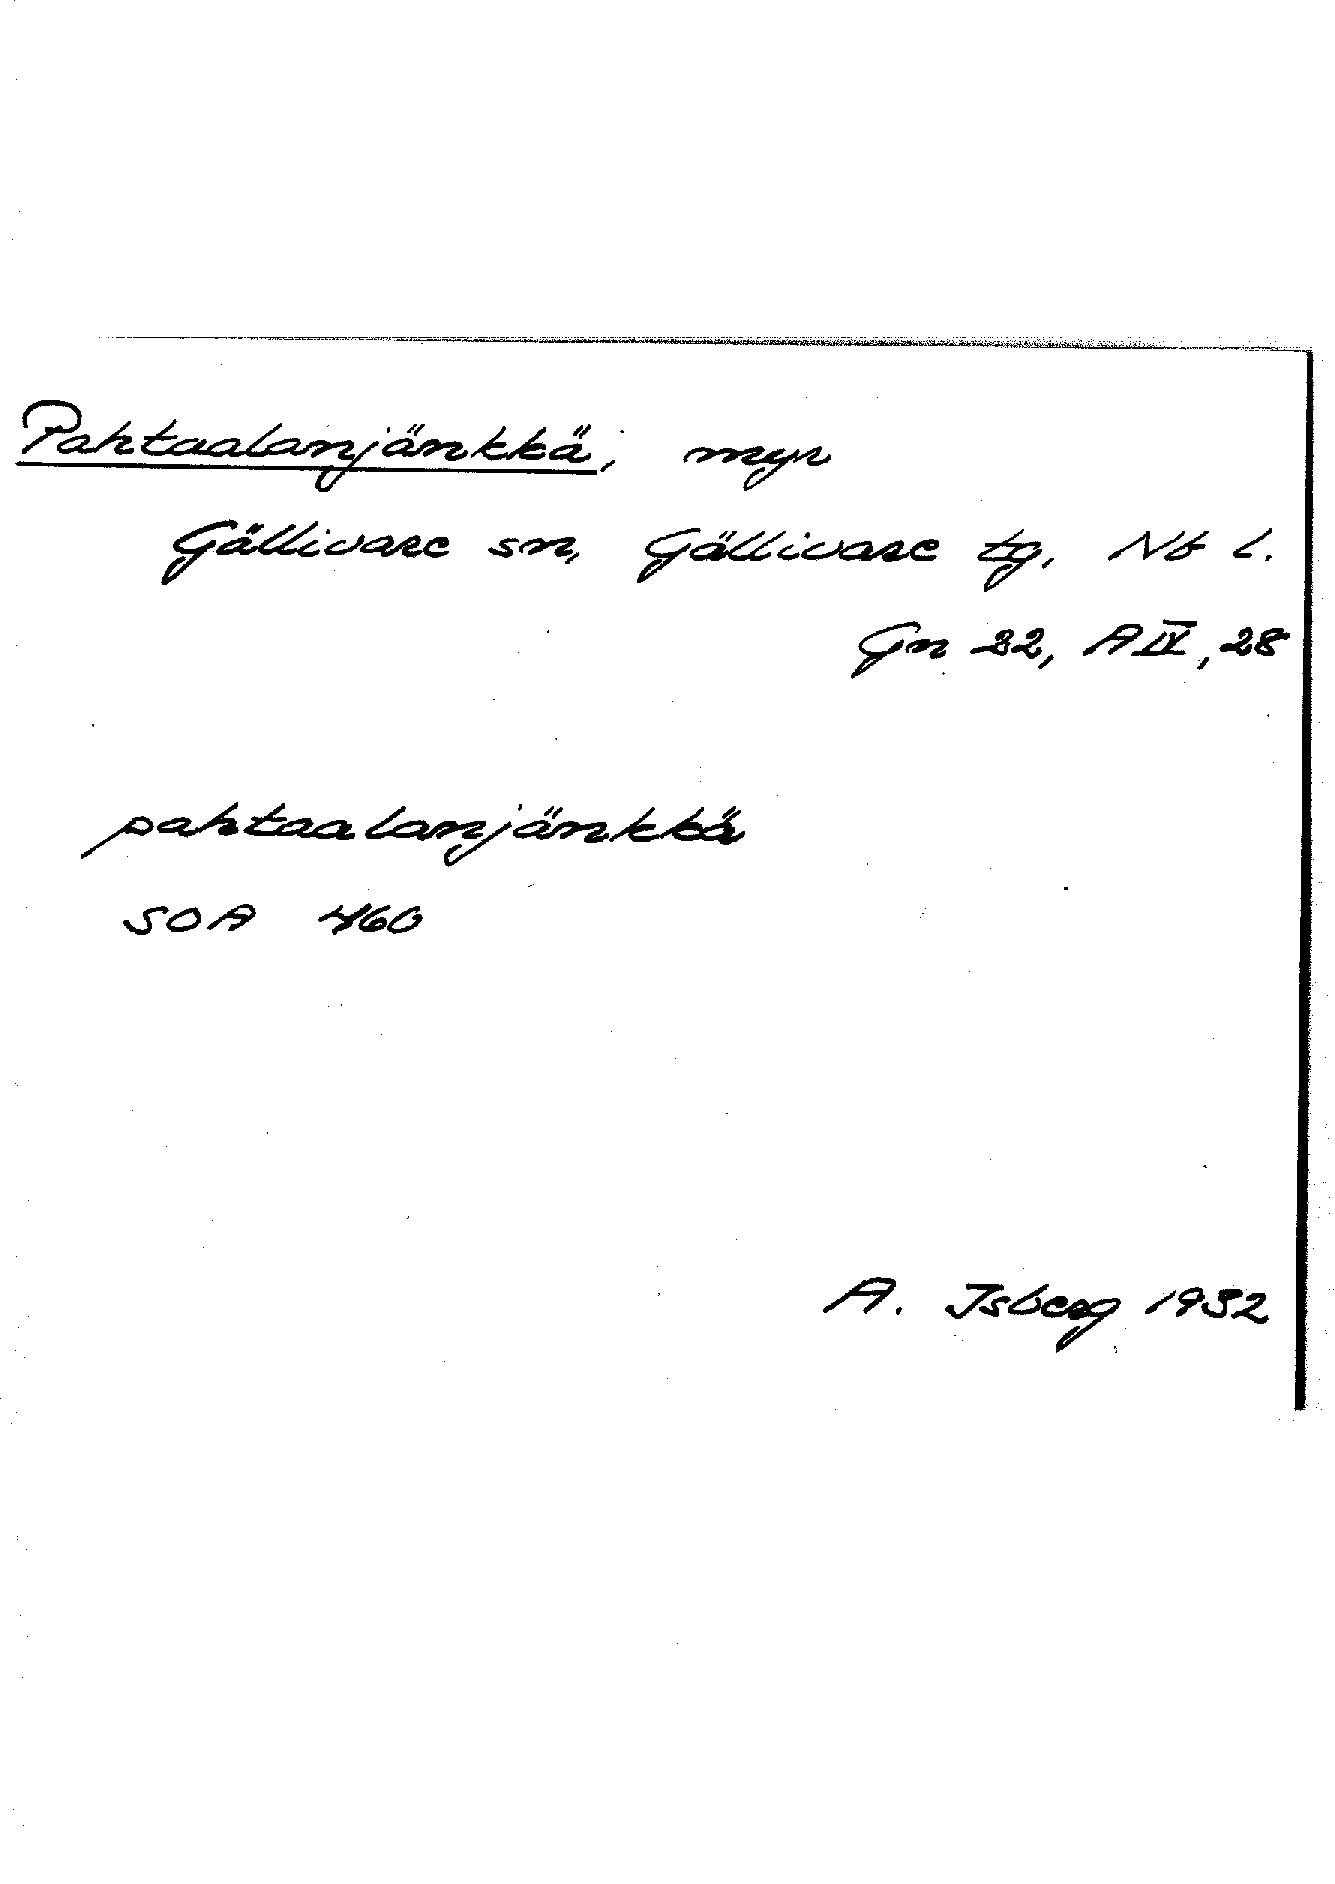 Pahtaalanjänkkä, myr
Gällivare sn, Gällivare tg, Nb l.
Gn 22, A IV, 28
pahtaalanjänkkä
SOA 460
A. Isberg 1932